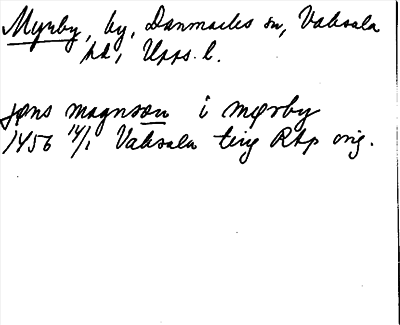 Myrby, by, Danmarks sn, Vaksala
hd, Upps. l.
jøns magnson i mørby
1456 14/1 Vaksala ting RAp orig.